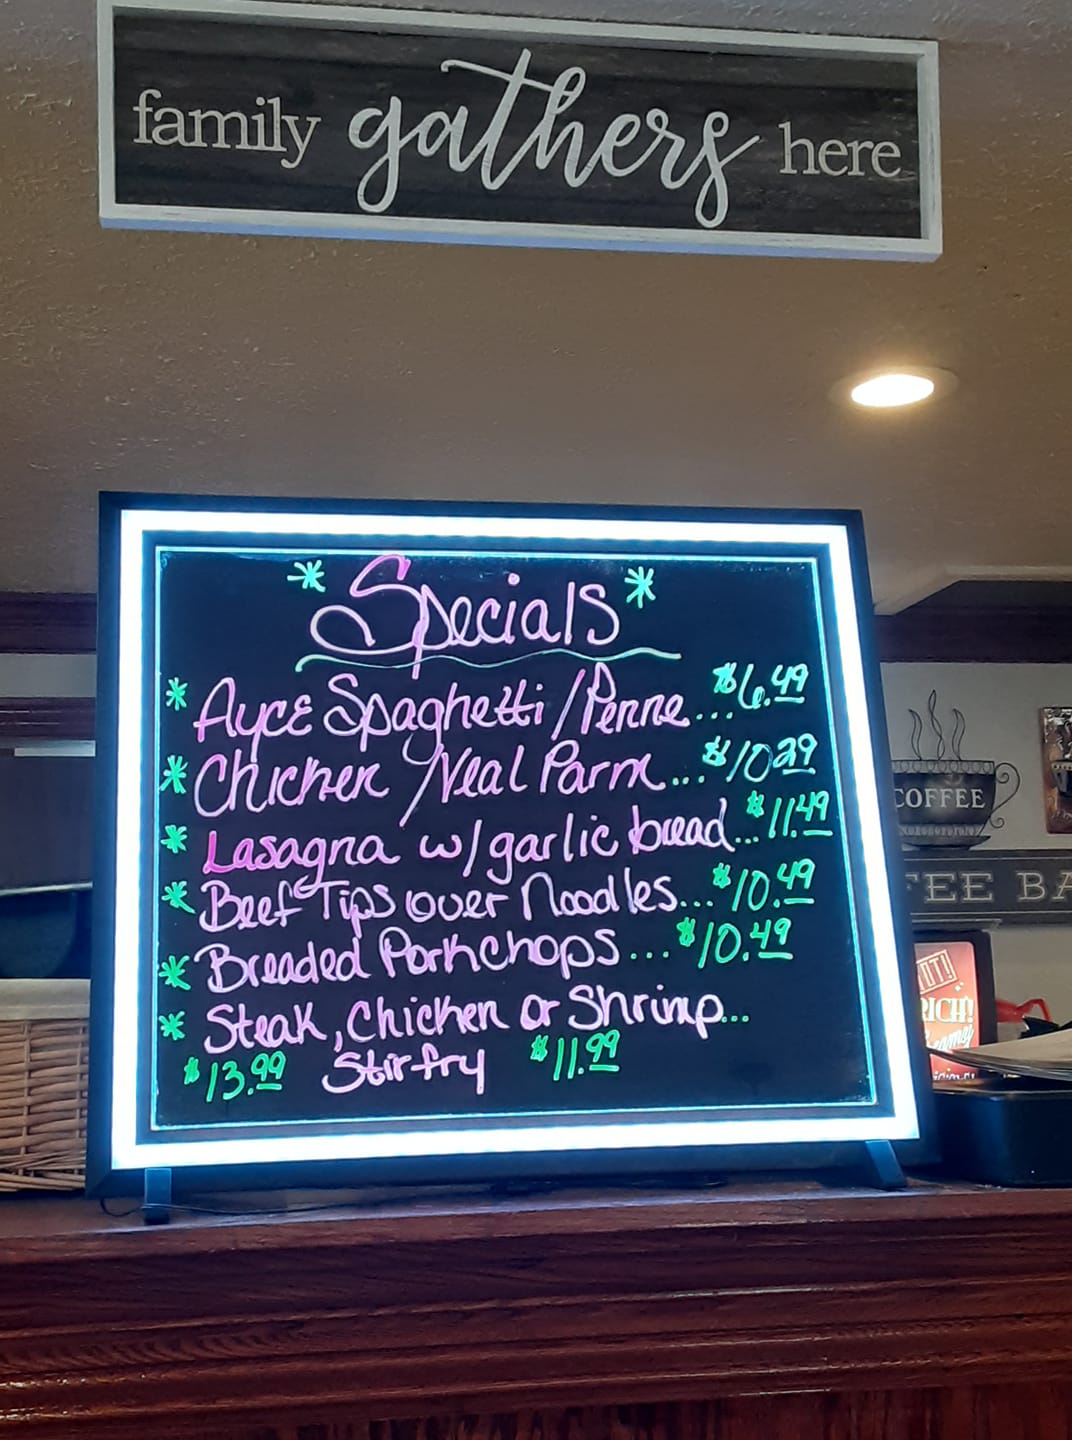 family gathers here
* Specials *
* Ayce Spaghetti/Penne...$6.49
* Chicken/Veal Parm...$10.29
* Lasagna w/garlic bread...$11.49
* Beef Tips over Noodles...$10.49
* Breaded Porkchops...$10.49
* Steak, Chicken or Shrimp...
$13.99 Stirfry $11.99
COFFEE
FEE BA
HOT!
RICH!